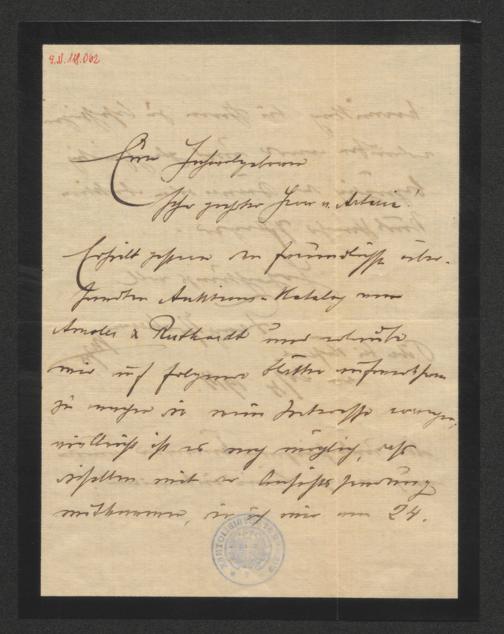 E.N. 118.062
Euer Hochwolgeboren
Sehr geehrter Herr v. Artaria!
Erhielt gestern den freundlichst über-
sandten Auktions-Katalog von
Amsler & Ruthardt und erlaube
mir auf folgende Blätter aufmerksam
zu machen die mein Interesse erregen,
vielleicht ist es noch möglich, daß
dieselben mit der Ansichts Sendung
mitkommen, die ich mir am 24.